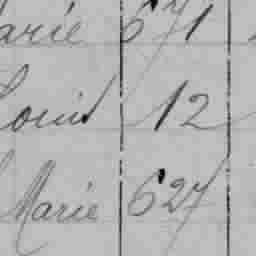 Marie 671
Louis 12
Marie 627